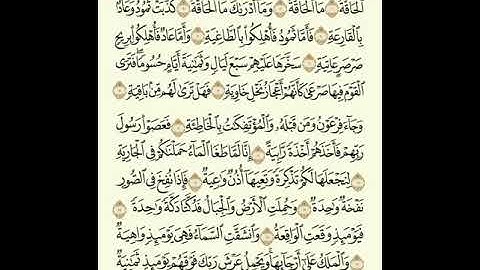 ٱلۡحَآقَّةُ مَا ٱلۡحَآقَّةُ وَمَآ أَدۡرَىٰكَ مَا ٱلۡحَآقَّةُ كَذَّبَتۡ ثَمُودُ وَعَادُۢ
بِٱلۡقَارِعَةِ فَأَمَّا ثَمُودُ فَأُهۡلِكُواْ بِٱلطَّاغِيَةِ وَأَمَّا عَادٞ فَأُهۡلِكُواْ بِرِيحٖ
صَرۡصَرٍ عَاتِيَةٖ سَخَّرَهَا عَلَيۡهِمۡ سَبۡعَ لَيَالٖ وَثَمَٰنِيَةَ أَيَّامٍ حُسُومٗاۖ فَتَرَى
ٱلۡقَوۡمَ فِيهَا صَرۡعَىٰ كَأَنَّهُمۡ أَعۡجَازُ نَخۡلٍ خَاوِيَةٖ فَهَلۡ تَرَىٰ لَهُم مِّنۢ بَاقِيَةٖ
وَجَآءَ فِرۡعَوۡنُ وَمَن قَبۡلَهُۥ وَٱلۡمُؤۡتَفِكَٰتُ بِٱلۡخَاطِئَةِ فَعَصَوۡاْ رَسُولَ
رَبِّهِمۡ فَأَخَذَهُمۡ أَخۡذَةٗ رَّابِيَةً إِنَّا لَمَّا طَغَا ٱلۡمَآءُ حَمَلۡنَٰكُمۡ فِي ٱلۡجَارِيَةِ
لِنَجۡعَلَهَا لَكُمۡ تَذۡكِرَةٗ وَتَعِيَهَآ أُذُنٞ وَٰعِيَةٞ فَإِذَا نُفِخَ فِي ٱلصُّورِ
نَفۡخَةٞ وَٰحِدَةٞ وَحُمِلَتِ ٱلۡأَرۡضُ وَٱلۡجِبَالُ فَدُكَّتَا دَكَّةٗ وَٰحِدَةٗ
فَيَوۡمَئِذٖ وَقَعَتِ ٱلۡوَاقِعَةُ وَٱنشَقَّتِ ٱلسَّمَآءُ فَهِيَ يَوۡمَئِذٖ وَاهِيَةٞ
وَٱلۡمَلَكُ عَلَىٰٓ أَرۡجَآئِهَاۚ وَيَحۡمِلُ عَرۡشَ رَبِّكَ فَوۡقَهُمۡ يَوۡمَئِذٖ ثَمَٰنِيَةٞ